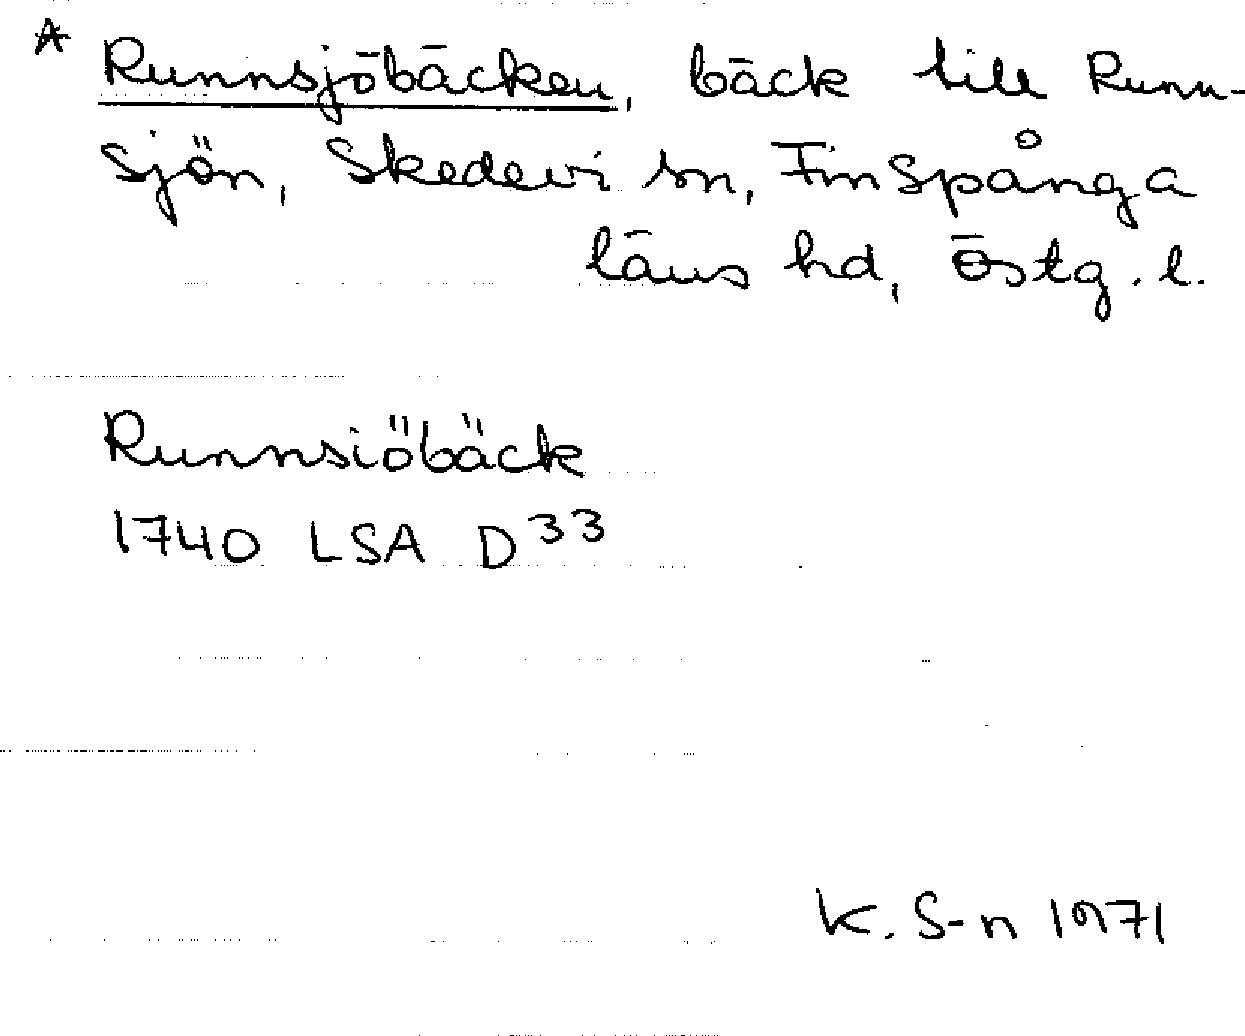 A Runnsjöbäcken, bäck till Runn-
sjön, Skedevi sn, Finspånga
läns hd, Östg. l.
Runnsiöbäck
1740 LSA D 33
K. S-n 1971